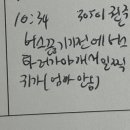 10:34 30이 런준
버스끊기기전에 버스
타러가야해서 일찍
귀가(엄마 안뇽)